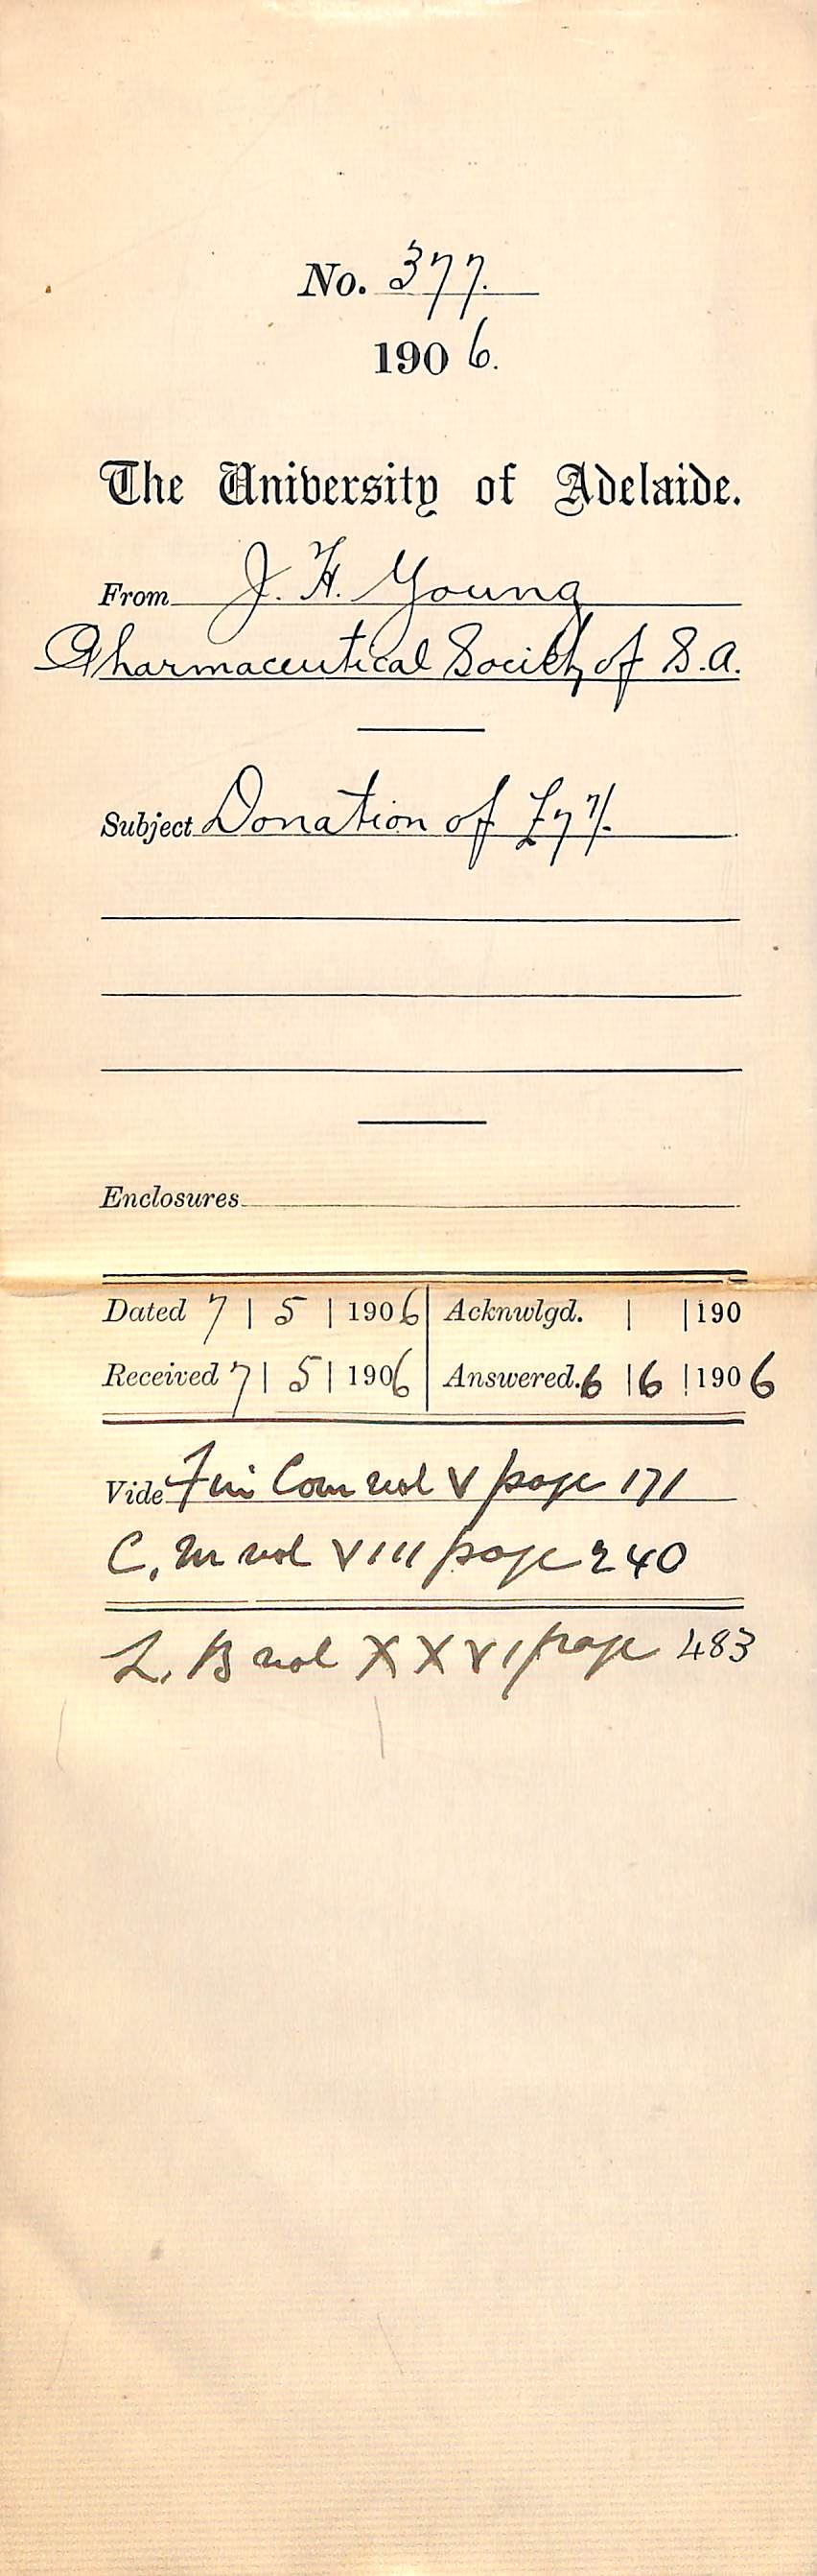 No. 377.
1906.
The University of Adelaide.
From J. H. Young
Pharmaceutical Society of S.A.
Subject Donation of £7 7/-
Enclosures
Dated 7 | 5 | 1906 | Acknwlgd. | | 190
Received 7 | 5 | 1906 | Answered. 6 | 6 | 1906
Vide Fin Com vol V page 171
C. M vol VIII page 240
L. B vol XXVI page 483